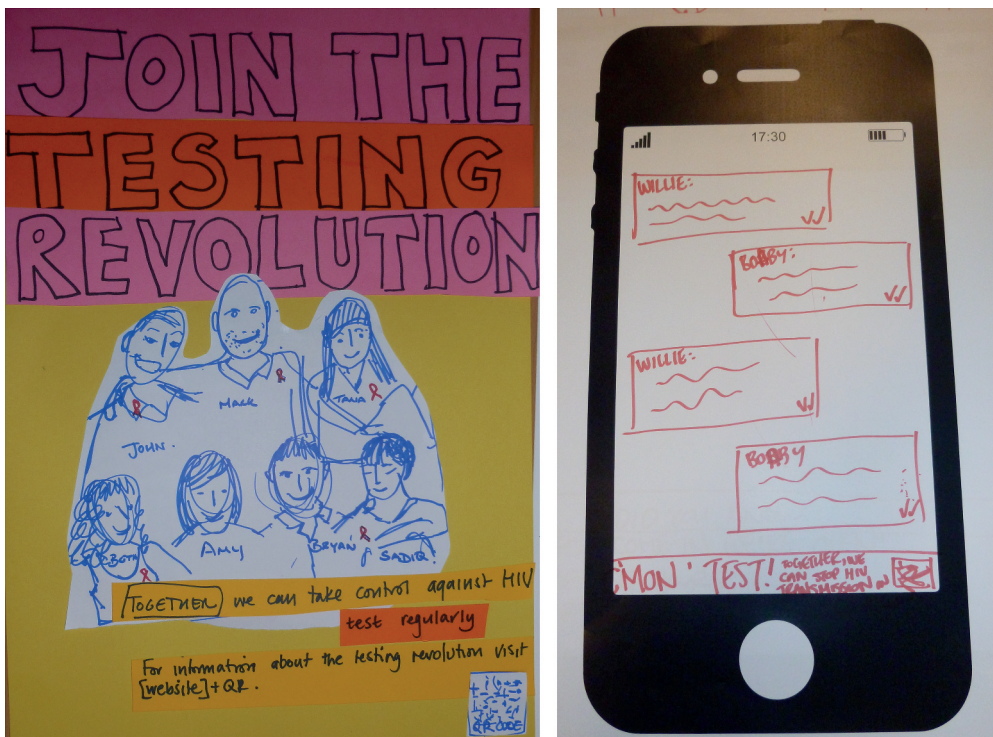 JOIN THE
TESTING
REVOLUTION
MARK
TANA
JOHN.
BETH
AMY
BRYAN
SADIQ
TOGETHER we can take control against HIV
test regularly
For information about the testing revolution visit
[website] + QR.
QR CODE
17:30
WILLIE:
BOBBY:
WILLIE:
BOBBY
C'MON' TEST! TOGETHER, WE
CAN STOP HIV
TRANSMISSION